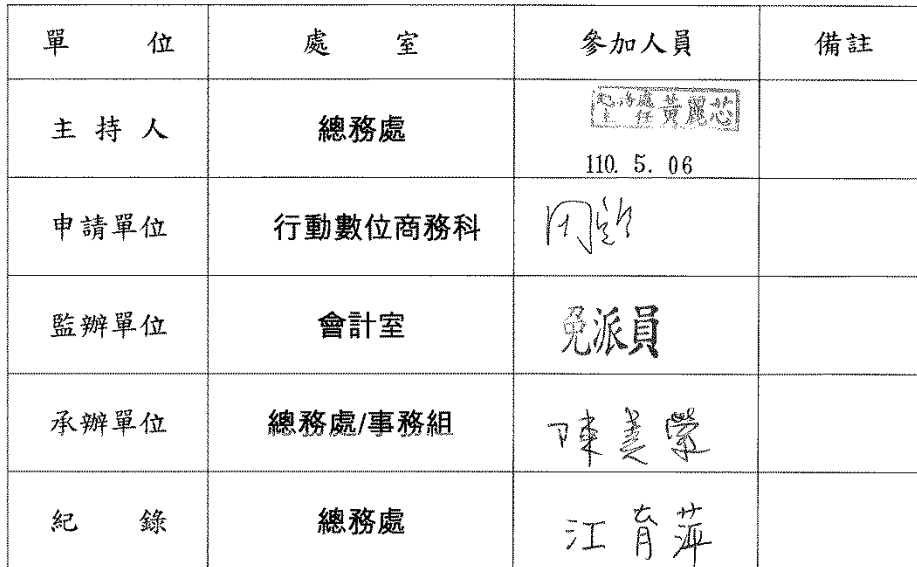 單 位 處 室 參加人員 備註
主 持 人 總務處 總務處主任 黃麗芯
110. 5. 06
申請單位 行動數位商務科
監辦單位 會計室 免派員
承辦單位 總務處/事務組 陳美瑩
紀 錄 總務處 江育萍